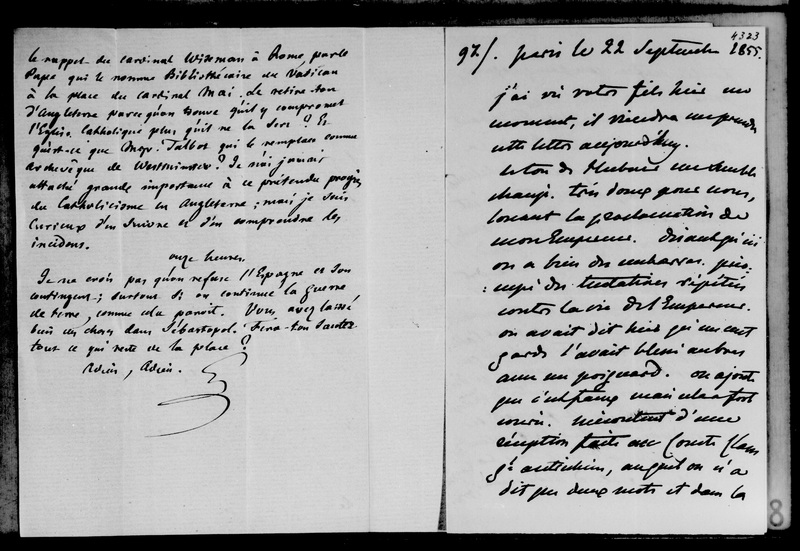 le rappel du cardinal Wiseman à Rome par le
Pape qui le nomme Bibliothécaire du Vatican
à la place du cardinal Mai. Le retire-t-on
d'Angleterre parce qu'on trouve qu'il y compromet
l'Eglise Catholique plus qu'il ne la sert ? Et
qu'est-ce que Mgr. Talbot qui le remplace comme
archevêque de Westminster ? Je n'ai jamais
attaché grande importance à ce prétendu progrès
du Catholicisme en Angleterre ; mais je suis
curieux d'en suivre et d'en comprendre les
incidens.
onze heures.
Je ne crois pas qu'on refuse l'Espagne et son
contingent ; surtout si on continue la guerre
de terre, comme cela paroit. Vous avez laissé
bien des choses dans Sébastopol. Fera-t-on sauter
tout ce qui reste de la place ?
Adieu, Adieu. G
4323
97/. paris le 22 Septembre 1855.
j'ai vu votre fils hier un
moment, il viendra me prendre
cette lettre aujourd'huy.
le ton de Hubner me semble
changé. très doux pour nous,
louant la proclamation de
mon Empereur. disant qu'ici
on a bien des embarras. préoc-
cupé des tentatives répétées
contre la vie de l'Empereur.
on avait dit hier qu'un cent
garde l'avait blessé au bras
avec un poignard. on ajoute
que c'est faux mais cela a fort
couru. mécontent d'une
réception faite au Comte
auquel on n'a
dit que deux mots et dans la
8